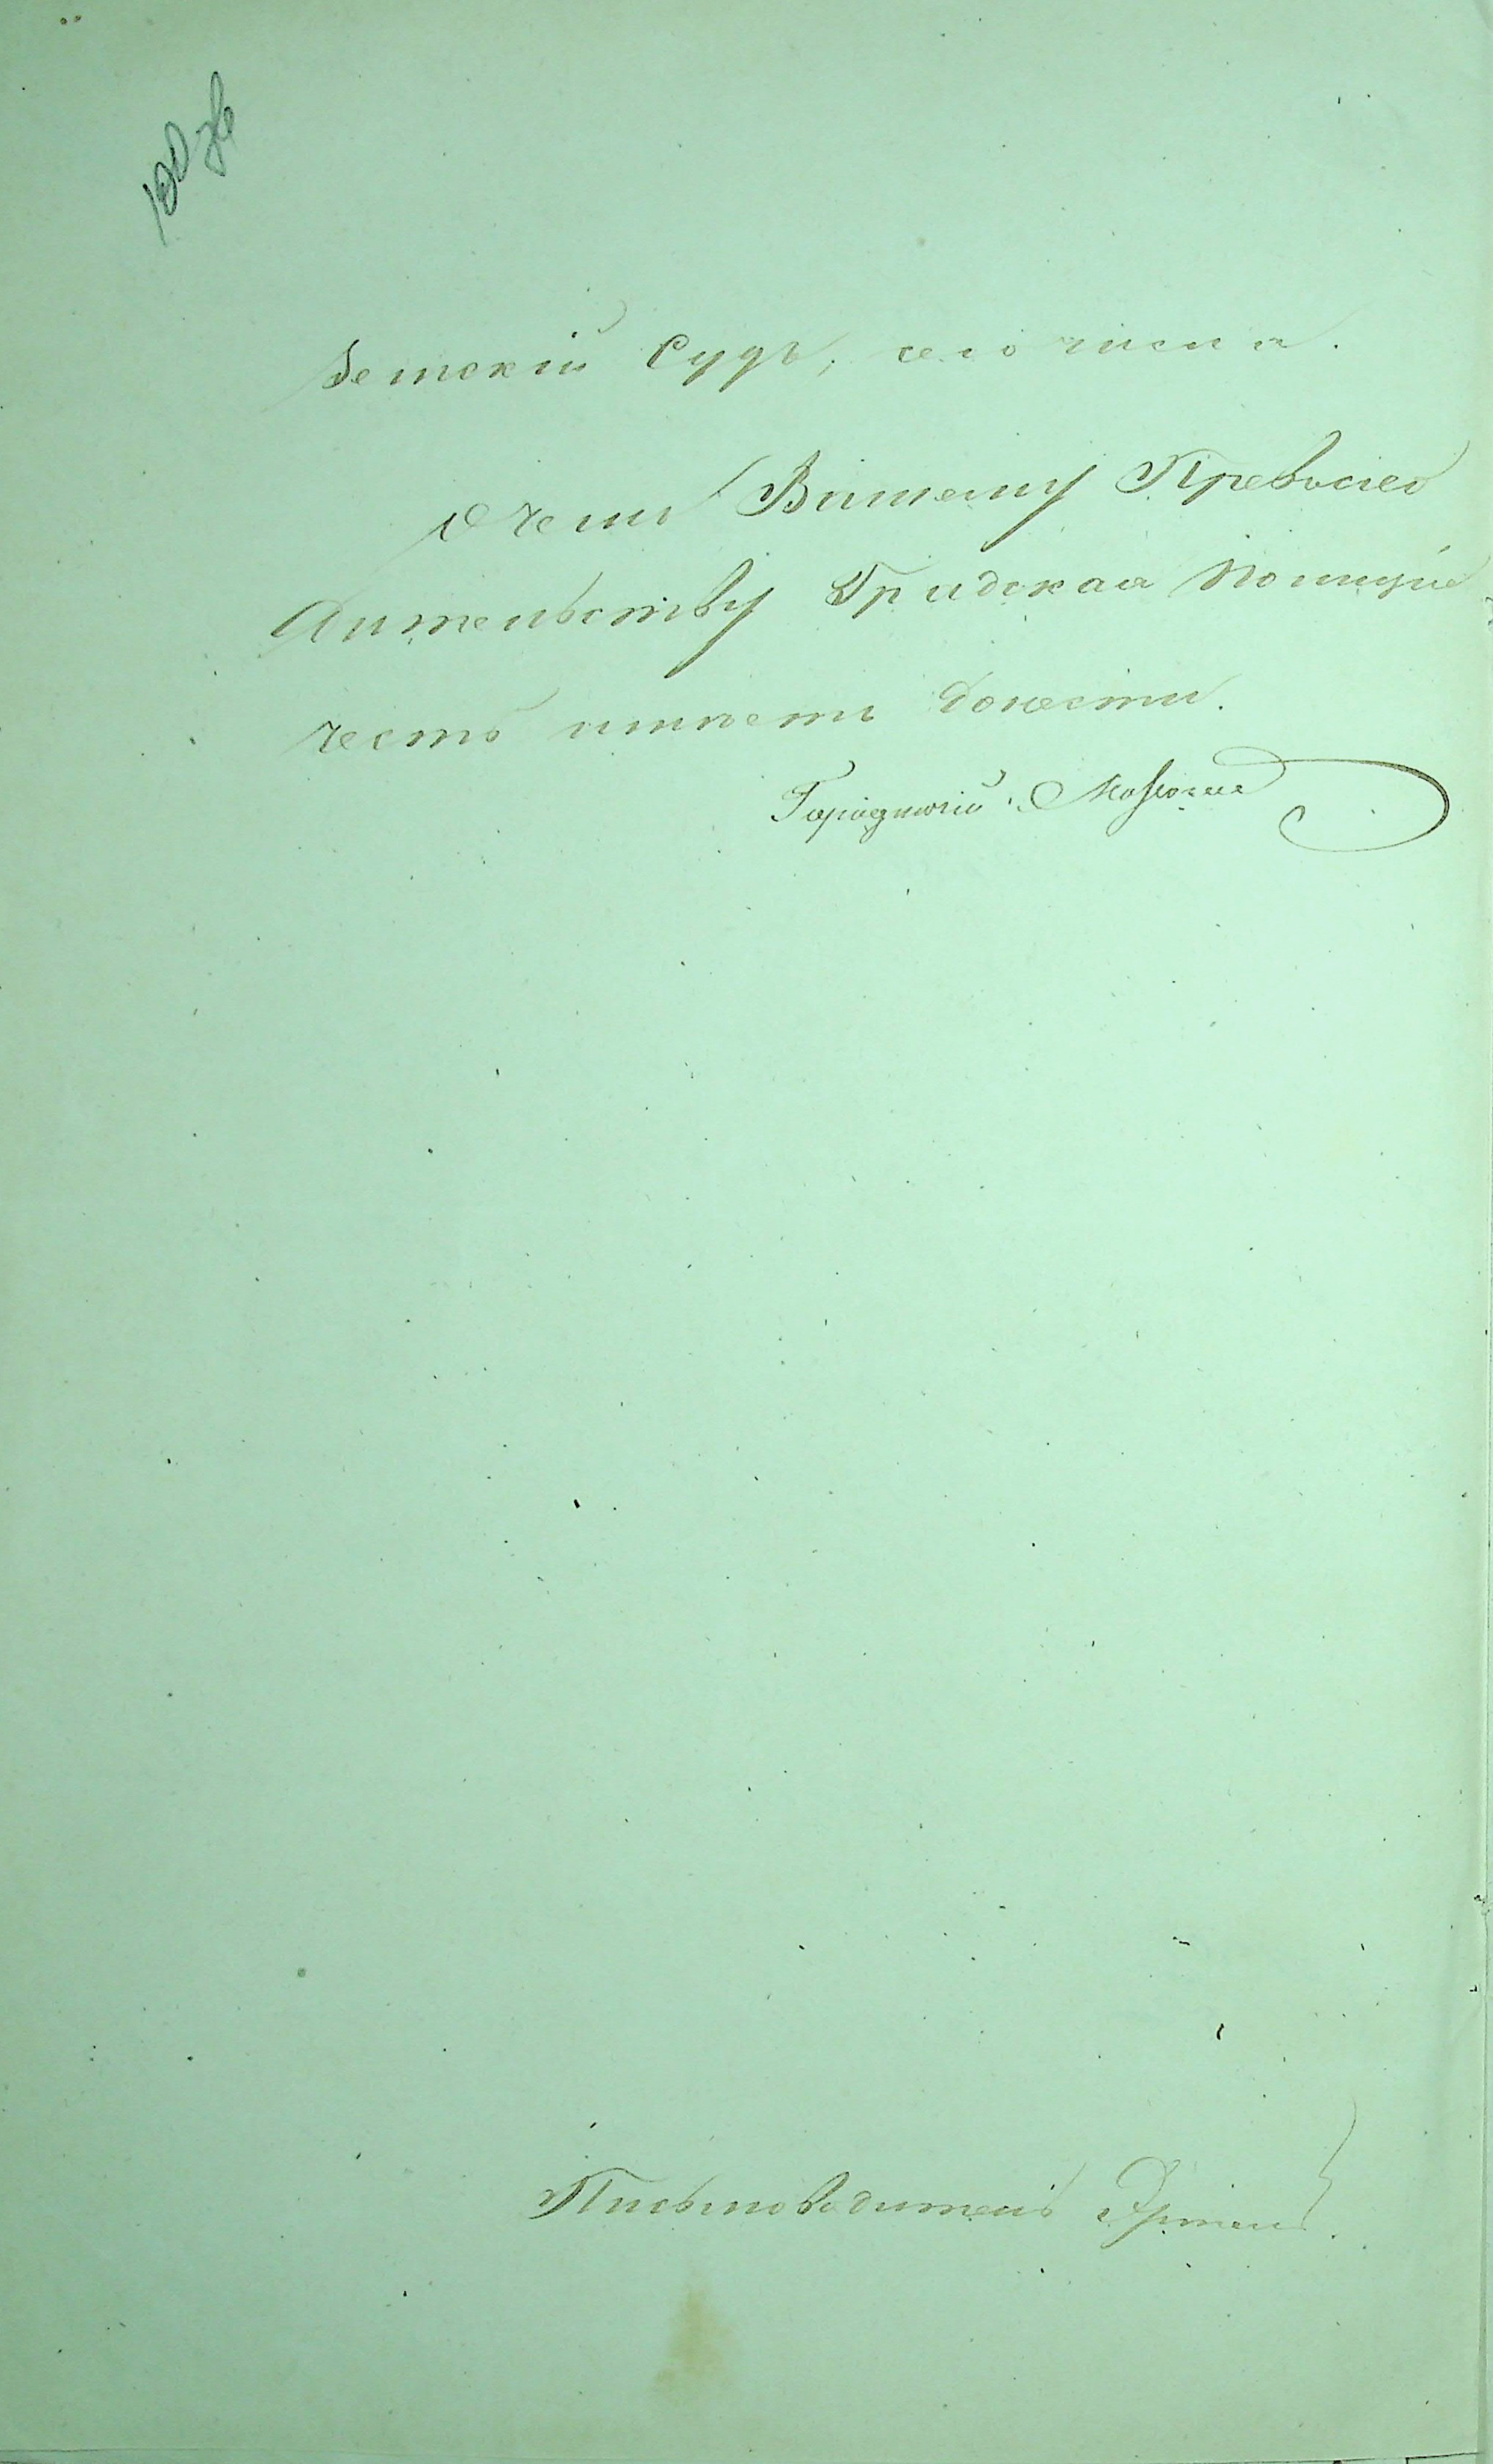 Земскій Судъ, сего числа.
О чемъ Вашему Превосхо
дительству Градская Полиція
честь имѣетъ донести.
Городничій
Письмоводитель